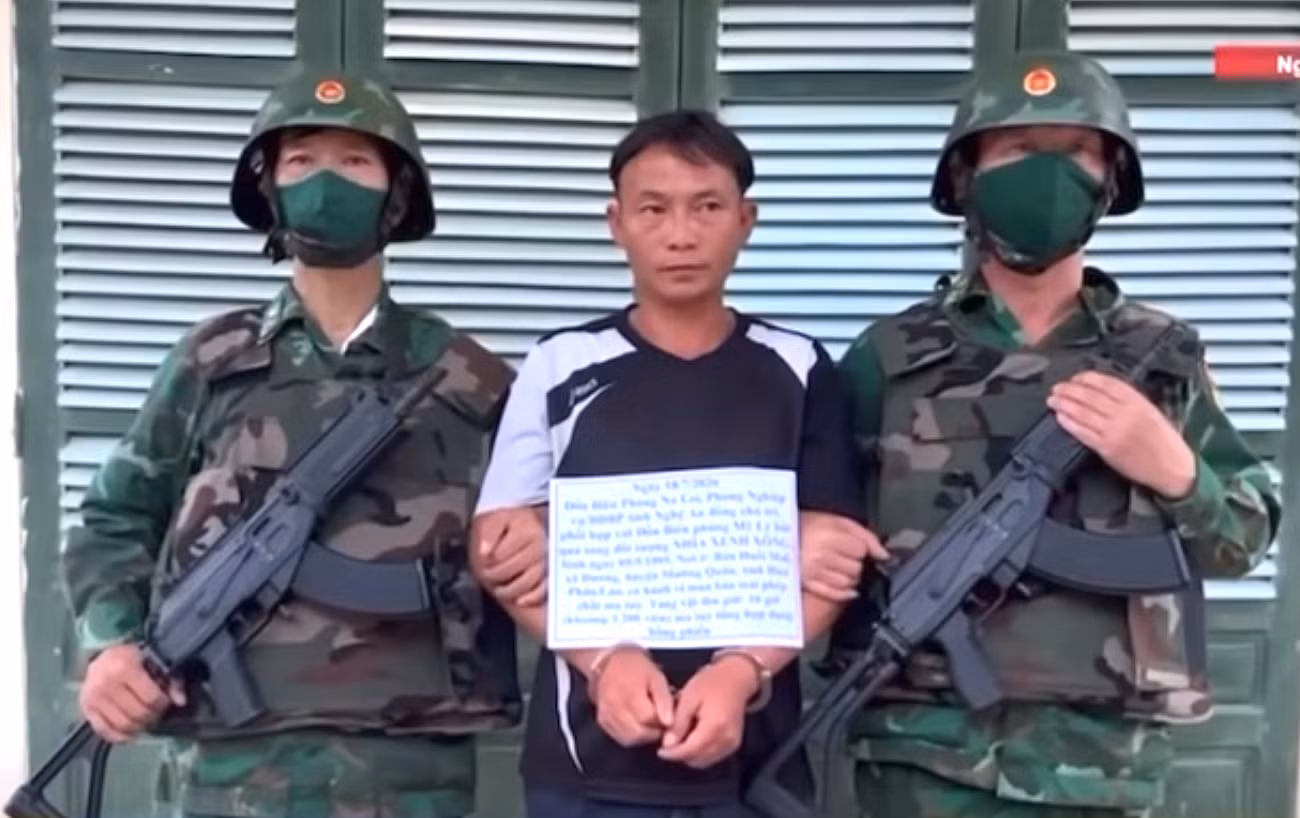 Ng
Ngày 18/7/2020
Đồn Biên Phòng Na Loi, Phòng Nghiệp
vụ BĐBP tỉnh Nghệ An đồng chủ trì,
phối hợp với Đồn Biên phòng Mỹ Lý bắt
quả tang đối tượng XÔNG,
Sinh ngày Nơi ở: Bản Huồi
xã huyện Mường Quắn, tỉnh Hủa
Phăn/Lào, có hành vi mua bán trái phép
chất ma túy. Tang vật thu giữ: gói
(khoảng viên) ma túy tổng hợp dạng
hồng phiến